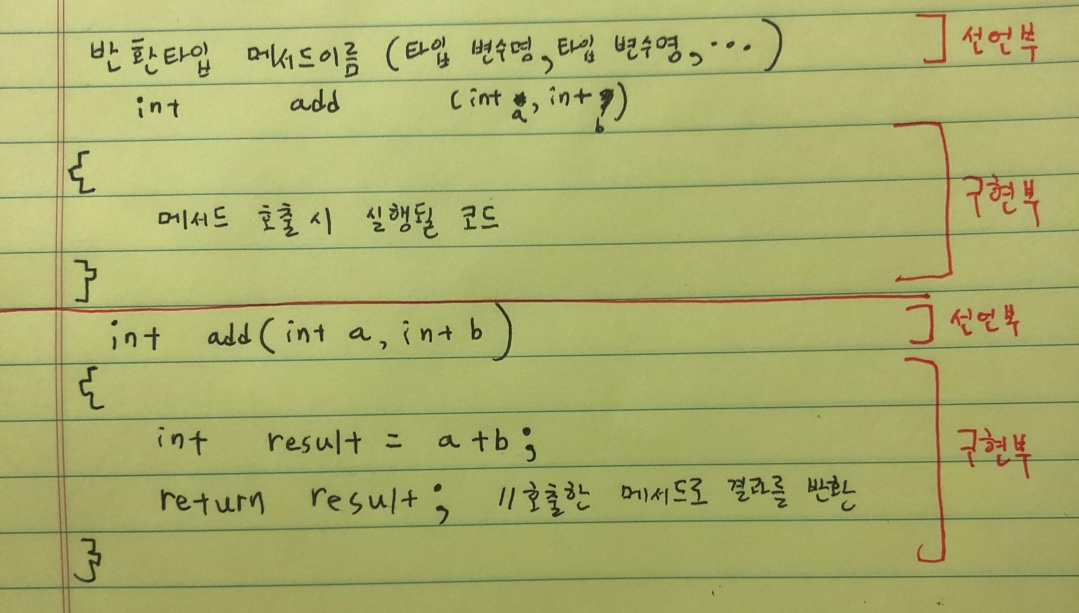 반환타입 메서드이름 (타입 변수명, 타입 변수명, ...) ] 선언부
int add (int a, int b)
{
메서드 호출 시 실행될 코드
구현부
}
int add(int a, int b) ] 선언부
{
int result = a+b;
구현부
return result; //호출한 메서드로 결과를 반환
}